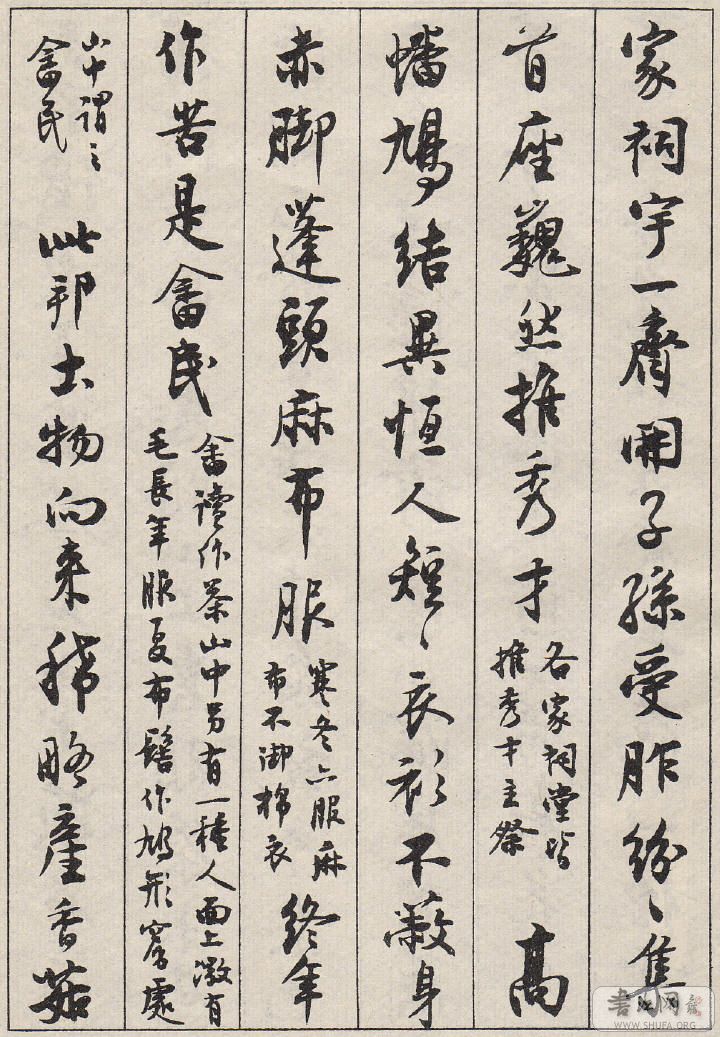 家祠宇一齊開子孫受胙紛〻集
首座巍然推秀才
各家祠堂皆
推秀才主祭
高
蟠鳩結異恒人短〻衣衫不蔽身
赤脚蓬頭麻布服
寒冬亦服麻
布不御棉衣
終年
作苦是畲民
畲讀作茶山中另有一種人面上微有
毛長年服夏布髻作鳩形窩處
山中謂之
畲民
此邦土物向來稀略產香菇
书法网
WWW.SHUFA.ORG